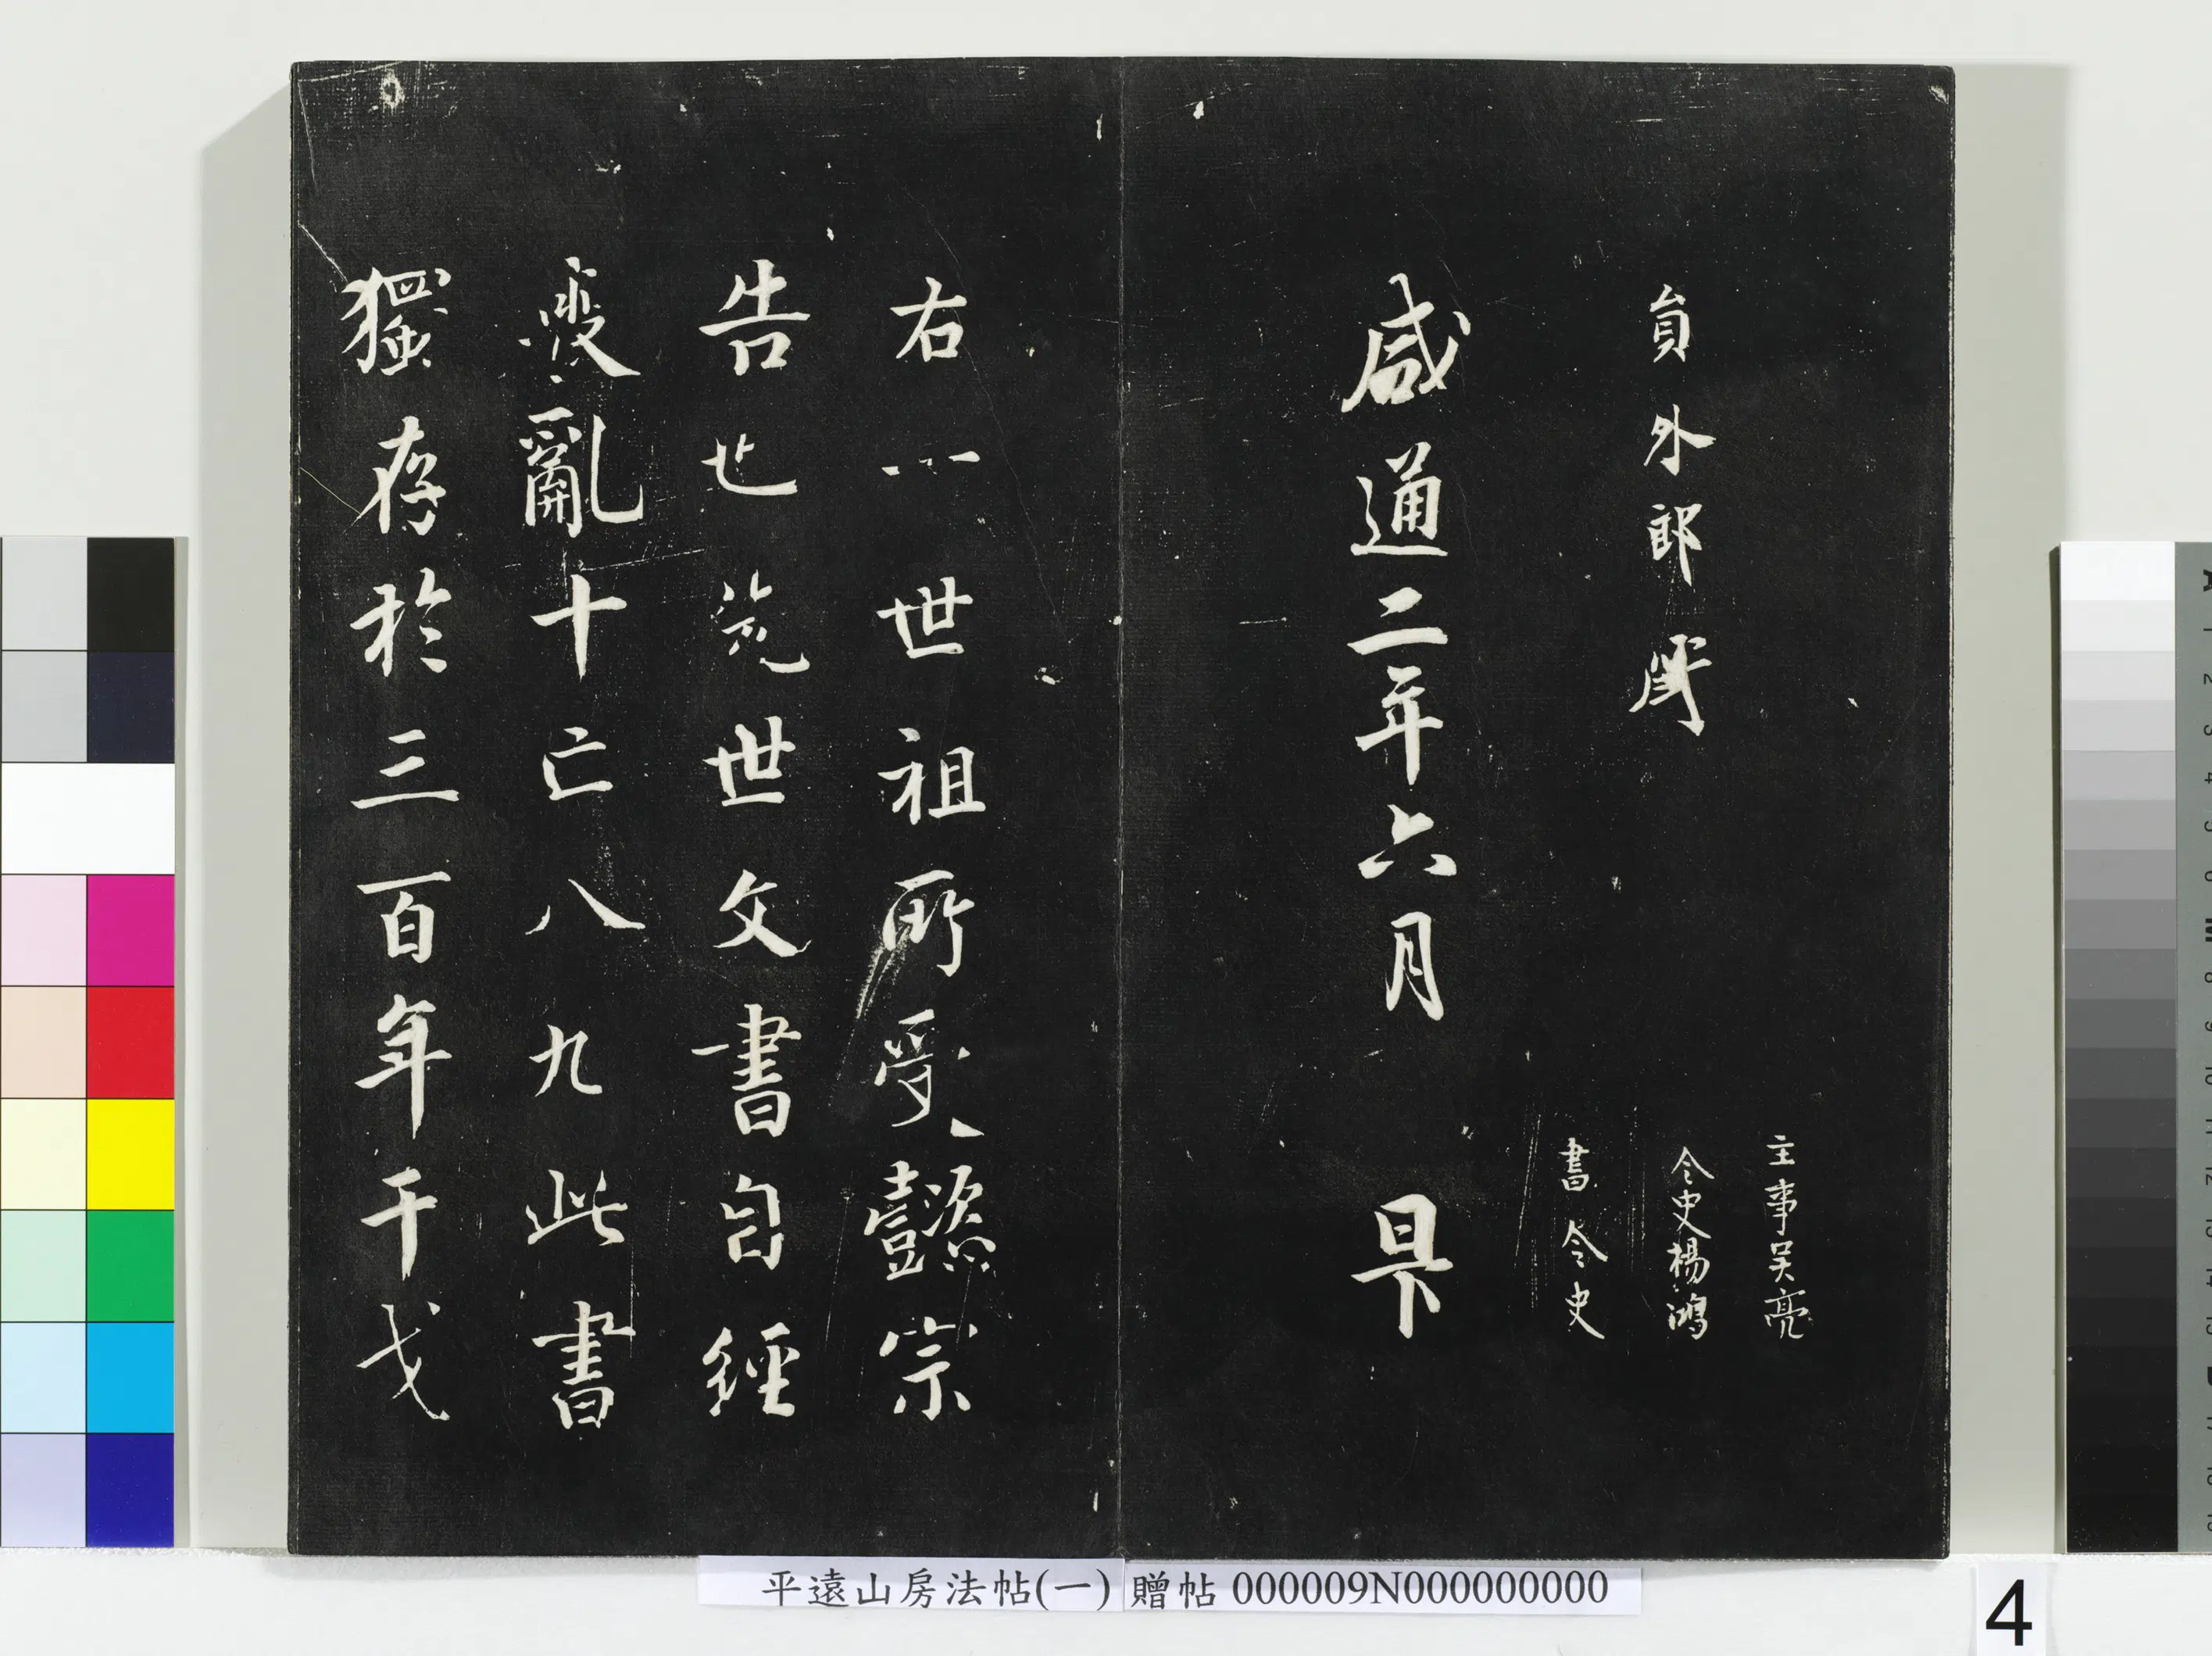 主事吳亮
員外郎
令史楊鴻
書令史
咸通二年六月 日下
右 世祖所受懿宗
告也范世文書自經
變亂十亡八九此書
獨存於三百年干戈
平遠山房法帖(一) 贈帖 000009N000000000
4